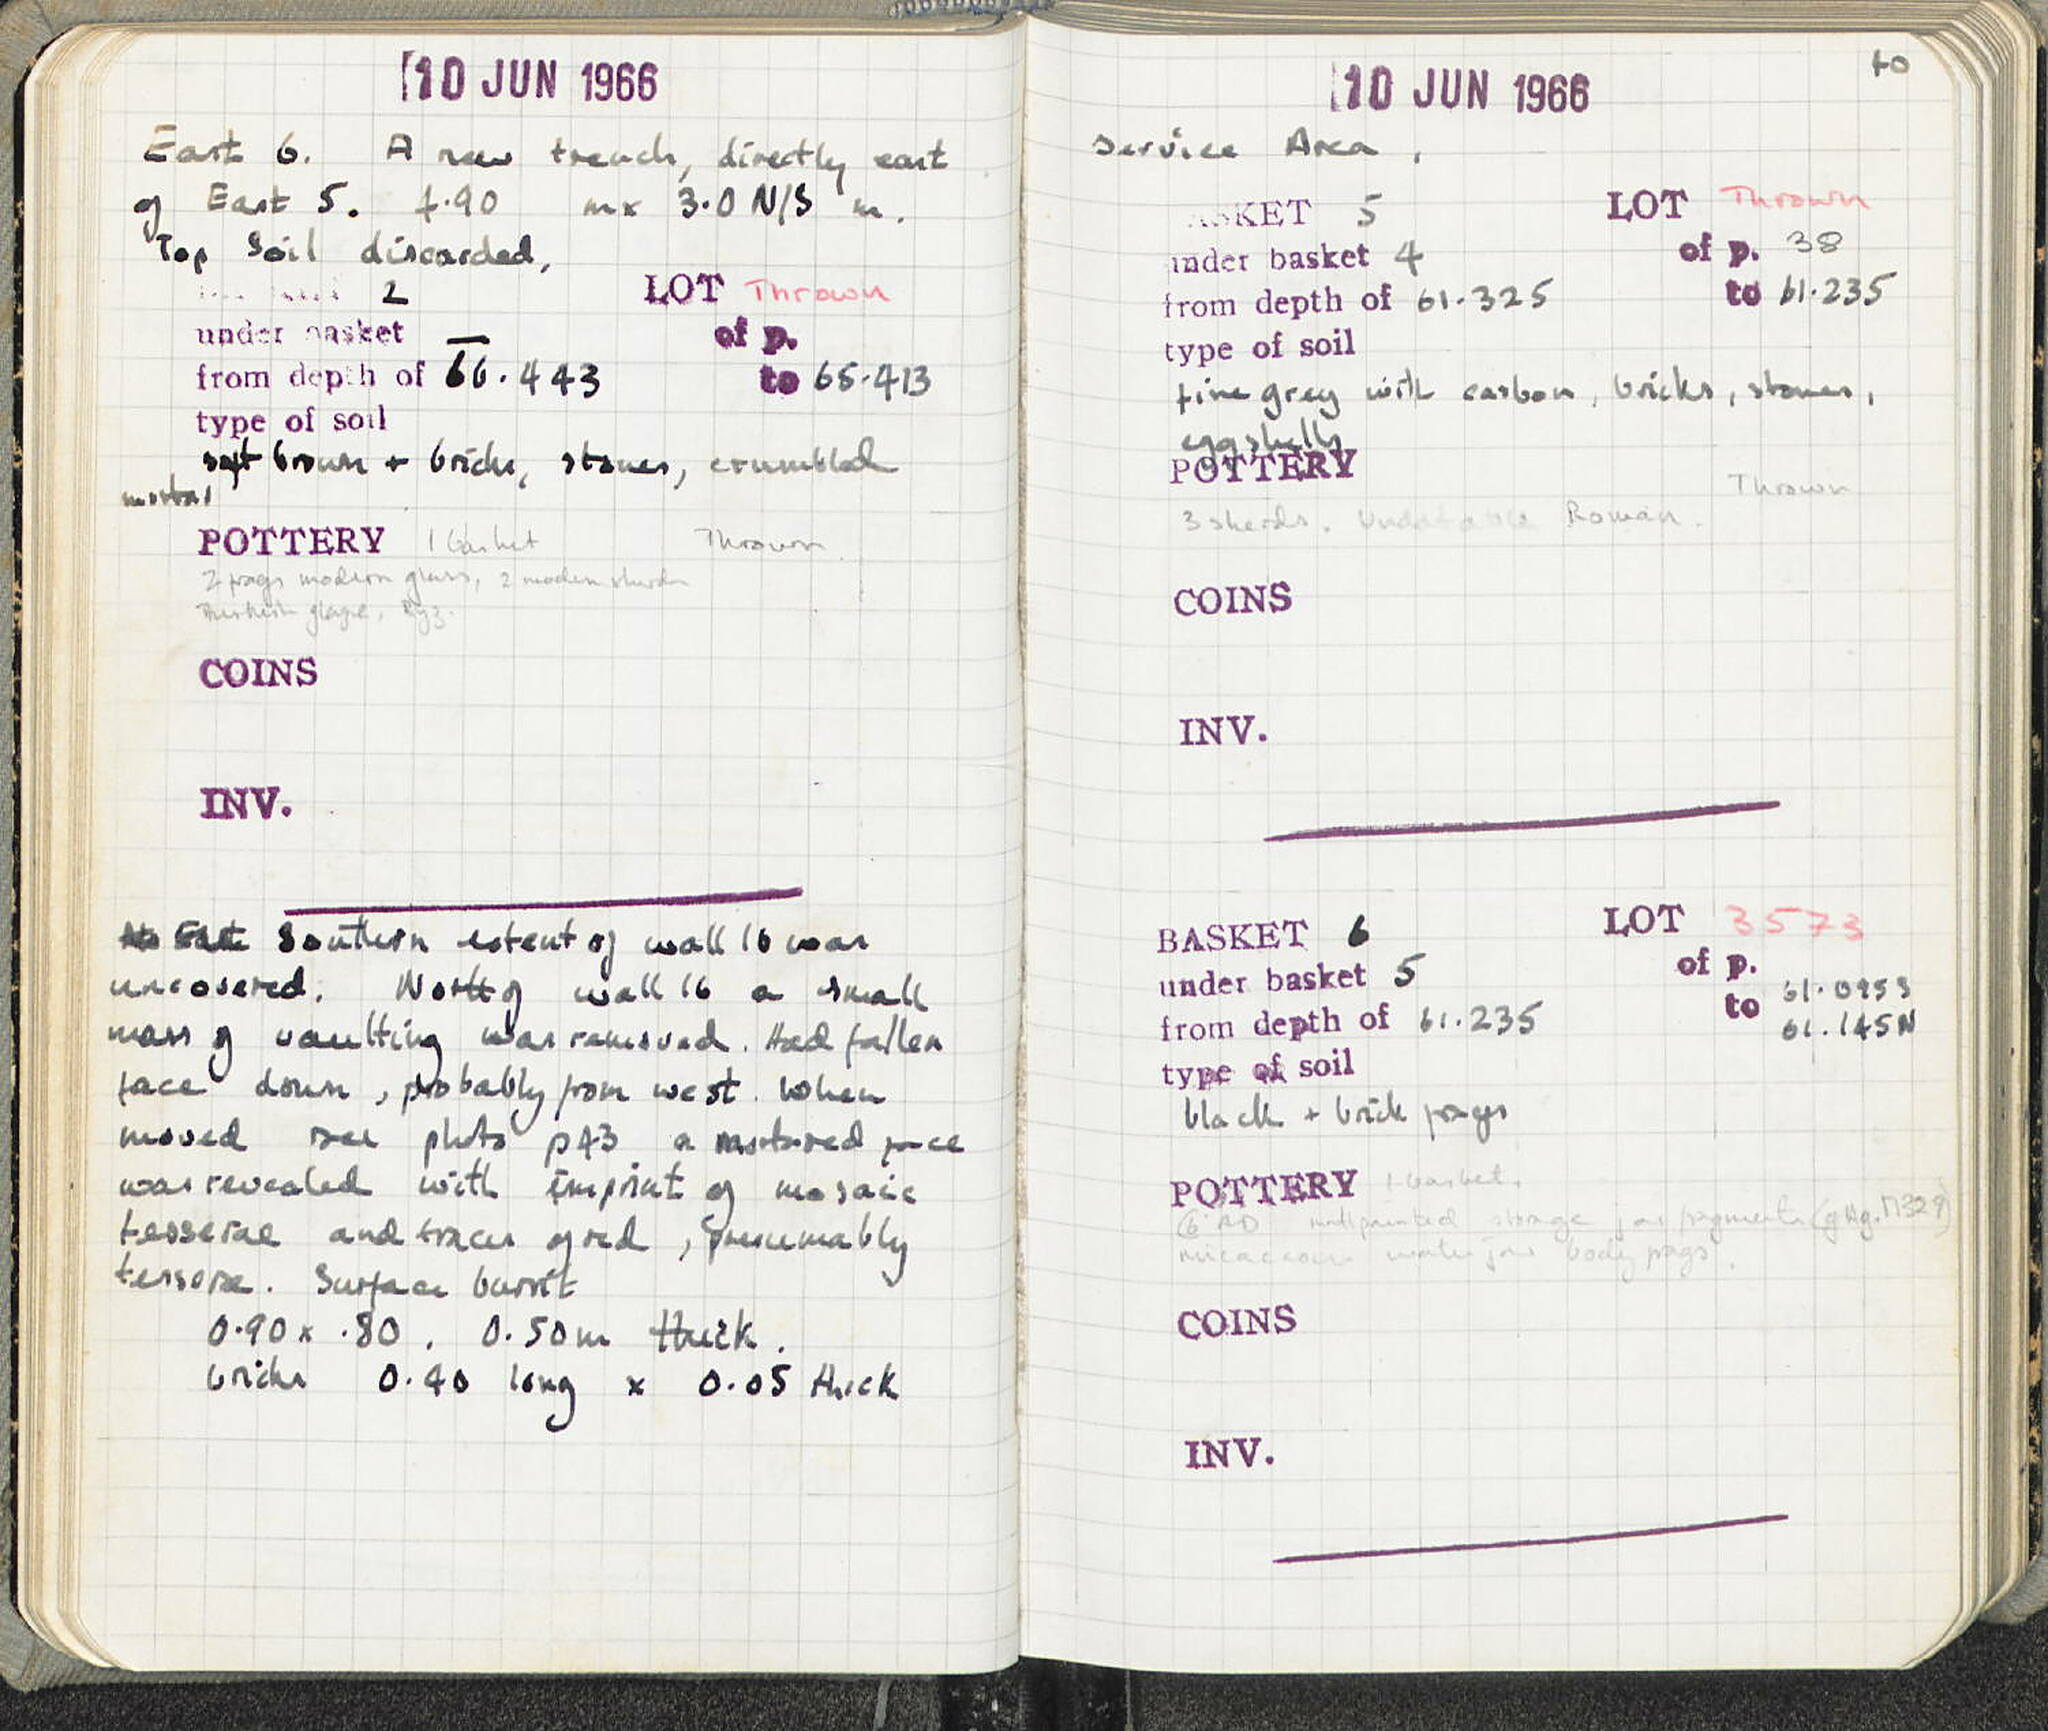 10 JUN 1966
East 6. A new trench, directly east
of East 5. 4.90 mx 3.0 N/S m.
Top Soil discarded,
2 LOT Thrown
under basket — of p.
from depth of 66.443 to 65.413
type of soil
soft brown + bricks, stones, crumbled
mortar
POTTERY 1 basket Thrown
2 frags modern glass, 2 modern sherds
Turkish glaze, Byz.
COINS
INV.
Southern extent of wall 16 was
uncovered. North of wall 16 a small
mass of vaulting was removed. Had fallen
face down, probably from west. When
moved see photo p43 a mortared face
was revealed with imprint of mosaic
tesserae and traces of red, presumably
tesserae. Surface burnt
0.90 x .80, 0.50m thick.
bricks 0.40 long x 0.05 thick
40
10 JUN 1966
Service Area,
BASKET 5 LOT Thrown
under basket 4 of p. 38
from depth of 61.325 to 61.235
type of soil
fine grey with carbon, bricks, stones,
eggshells
POTTERY Thrown
3 sherds. Undatable Roman.
COINS
INV.
BASKET 6 LOT 3573
under basket 5 of p.
from depth of 61.235 to 61.095S
61.145N
type of soil
black + brick frags
POTTERY 1 basket.
6 AD storage jar fragments (g Ag. M329)
micaceous water jar body frags.
COINS
INV.